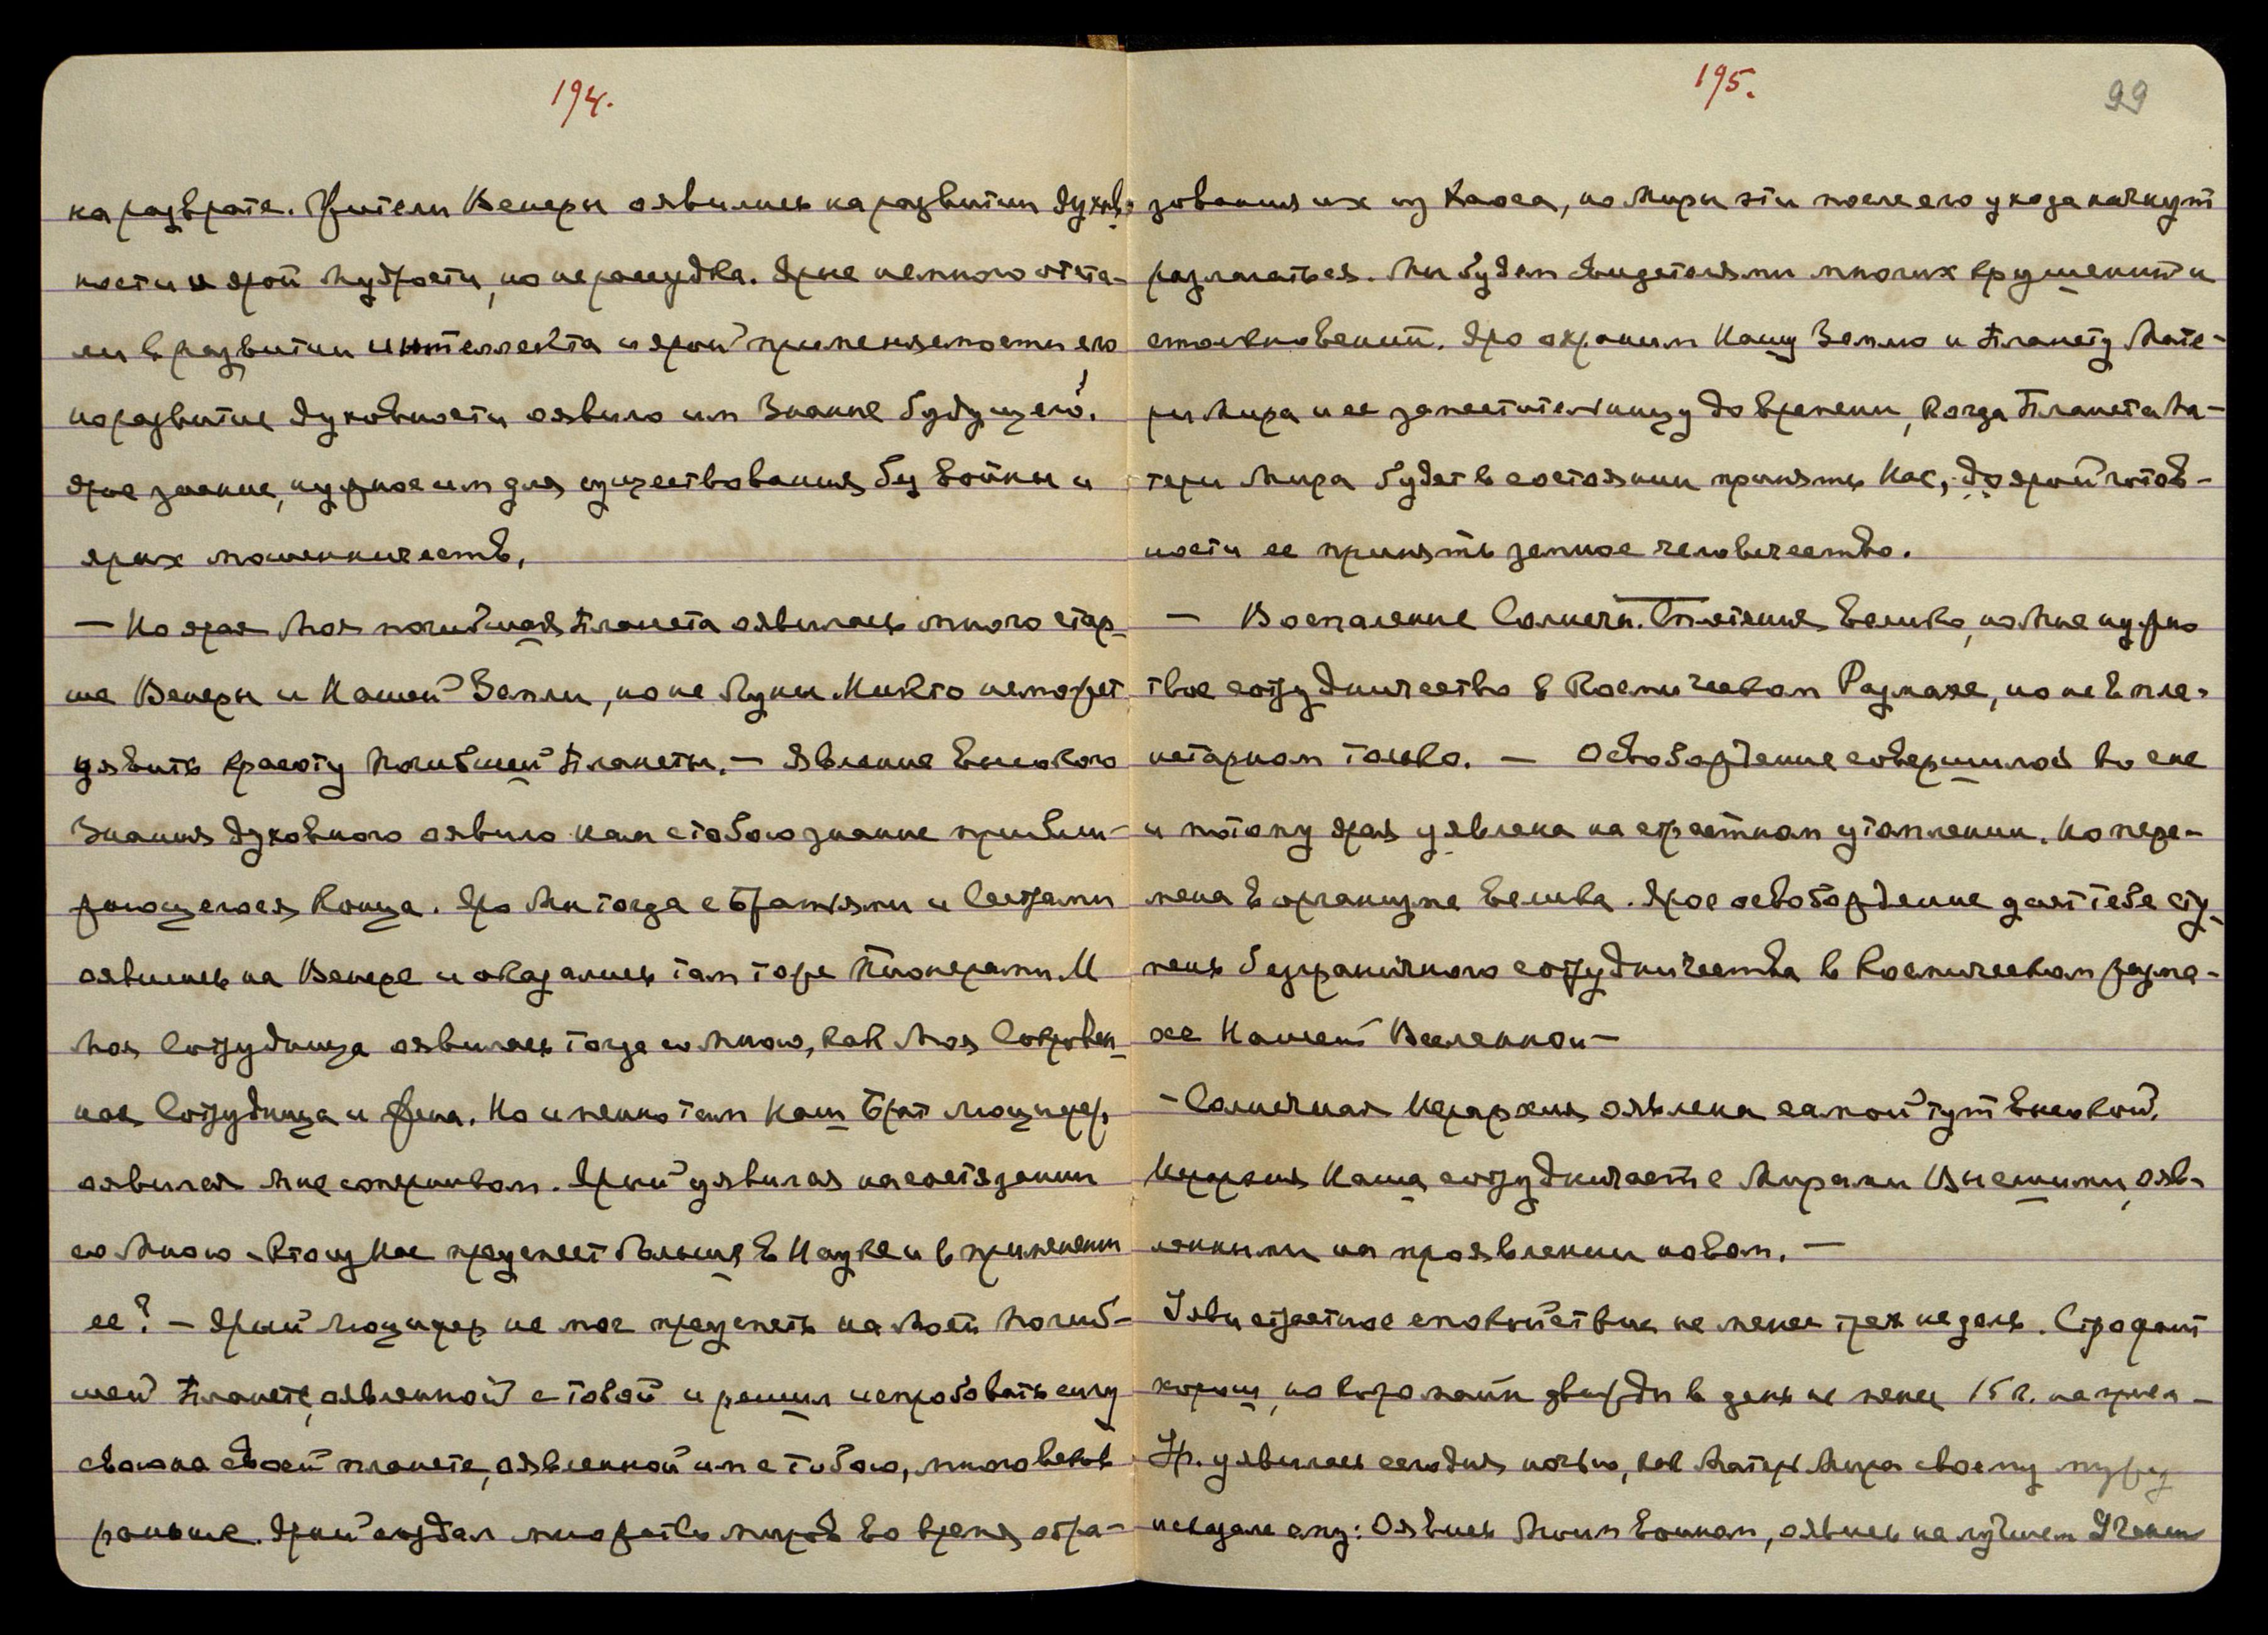 194.
на разврате. Жители Венеры оявились на развитии духов-
ности и ярой мудрости, но не рассудка. Ярые немного отста-
ли в развитии интеллекта и ярой применяемости его,
но развитие духовности оявило им Знание будущего.
ярое знание, нужное им для существования без войны и
ярых мошенничеств.
— Но ярая Моя погибшая Планета оявилась много стар-
ше Венеры и Нашей Земли, но не Луны. Никто не может
уявить красоту погибшей Планеты. — Явление Высокого
Знания духовного оявило нам с тобою знание прибли-
жающегося Конца. Яро Мы тогда с Братьями и Сестрами
оявились на Венере и оказались там тоже Пионерами. И
Моя Сотрудница оявилась тогда со Мною, как Моя Сокровен-
ная Сотрудница и Жена. Но именно там Наш Брат Люцифер
оявился Мне соперником. Ярый уявился на состязании
со Мною - Кто из Нас преуспеет больше в Науке и в применении
ее? — Ярый Люцифер не мог преуспеть на Моей погиб-
шей Планете, оявленной с тобой и решил испробовать силу
свою на своей планете, оявленной им с тобою, много веков
раньше. Ярый создал множество миров во время обра-
195.
99
зования их из Хаоса, но Миры эти после его ухода начнут
разлагаться. Мы будем свидетелями многих крушений и
столкновений. Яро охраним Нашу Землю и Планету Мате-
ри Мира и ее заместительницу до времени, когда Планета Ма-
тери Мира будет в состоянии принять Нас, до ярой готов-
ности ее принять земное человечество.
— Воспаление Солнечн. Сплетения велико, но Мне нужно
твое сотрудничество в Космическом Размахе, но не в пла-
нетарном только. — Освобождение совершилось во сне
и потому ярая уявлена на страстном утомлении. Но пере-
мена в организме велика. Ярое освобождение даст тебе сту-
пень безграничного сотрудничества в Космическом разма-
хе Нашей Вселенной —
- Солнечная Иерархия оявлена самой тут высокой.
Иерархия Наша сотрудничает с Мирами Высшими, ояв-
ленными на проявлении новом. —
Уяви страстное спокойствие не менее трех недель. Строфант
хорош, но принимай дважды в день не менее 15 к. на прием -
Ур. уявилась сегодня ночью, как Матерь Мира своему мужу
и сказала ему: Оявись Моим воином, оявись на лучшем